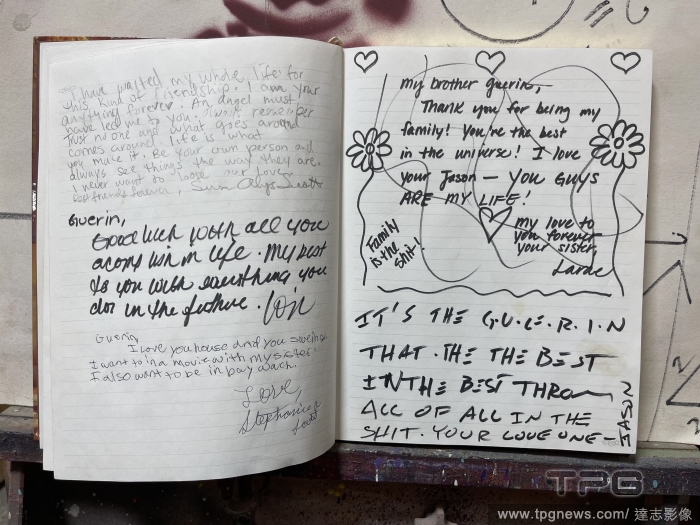 I have waited my whole life for
this kind of friendship. I am your
anything forever. An angel must
have led me to you. always remember
Trust no one and what goes around
comes around life is what
you make it. Be your own person and
always see things the way they are.
I never want to loose our love
best friends forever,
Guerin,
Good luck with all you
in life. My best
to you with everything you
do in the future.
Guerin,
I love you house and you
I want to in a movie with my sister
I also want to be in bay wach.
Love,
Stephanie
my brother guerin,
Thank you for being my
family! You're the best
in the universe! I love
your Jason — YOU GUYS
ARE MY LIFE!
Family
is the
shit!
my love to
you forever
your sister,
IT'S THE G.U.E.R.I.N
THAT. THE THE BEST
IN THE BEST
ALL OF ALL IN THE
SHIT. YOUR LOVE ONE—
JASON
TPG
www.tpgnews.com/ 達志影像